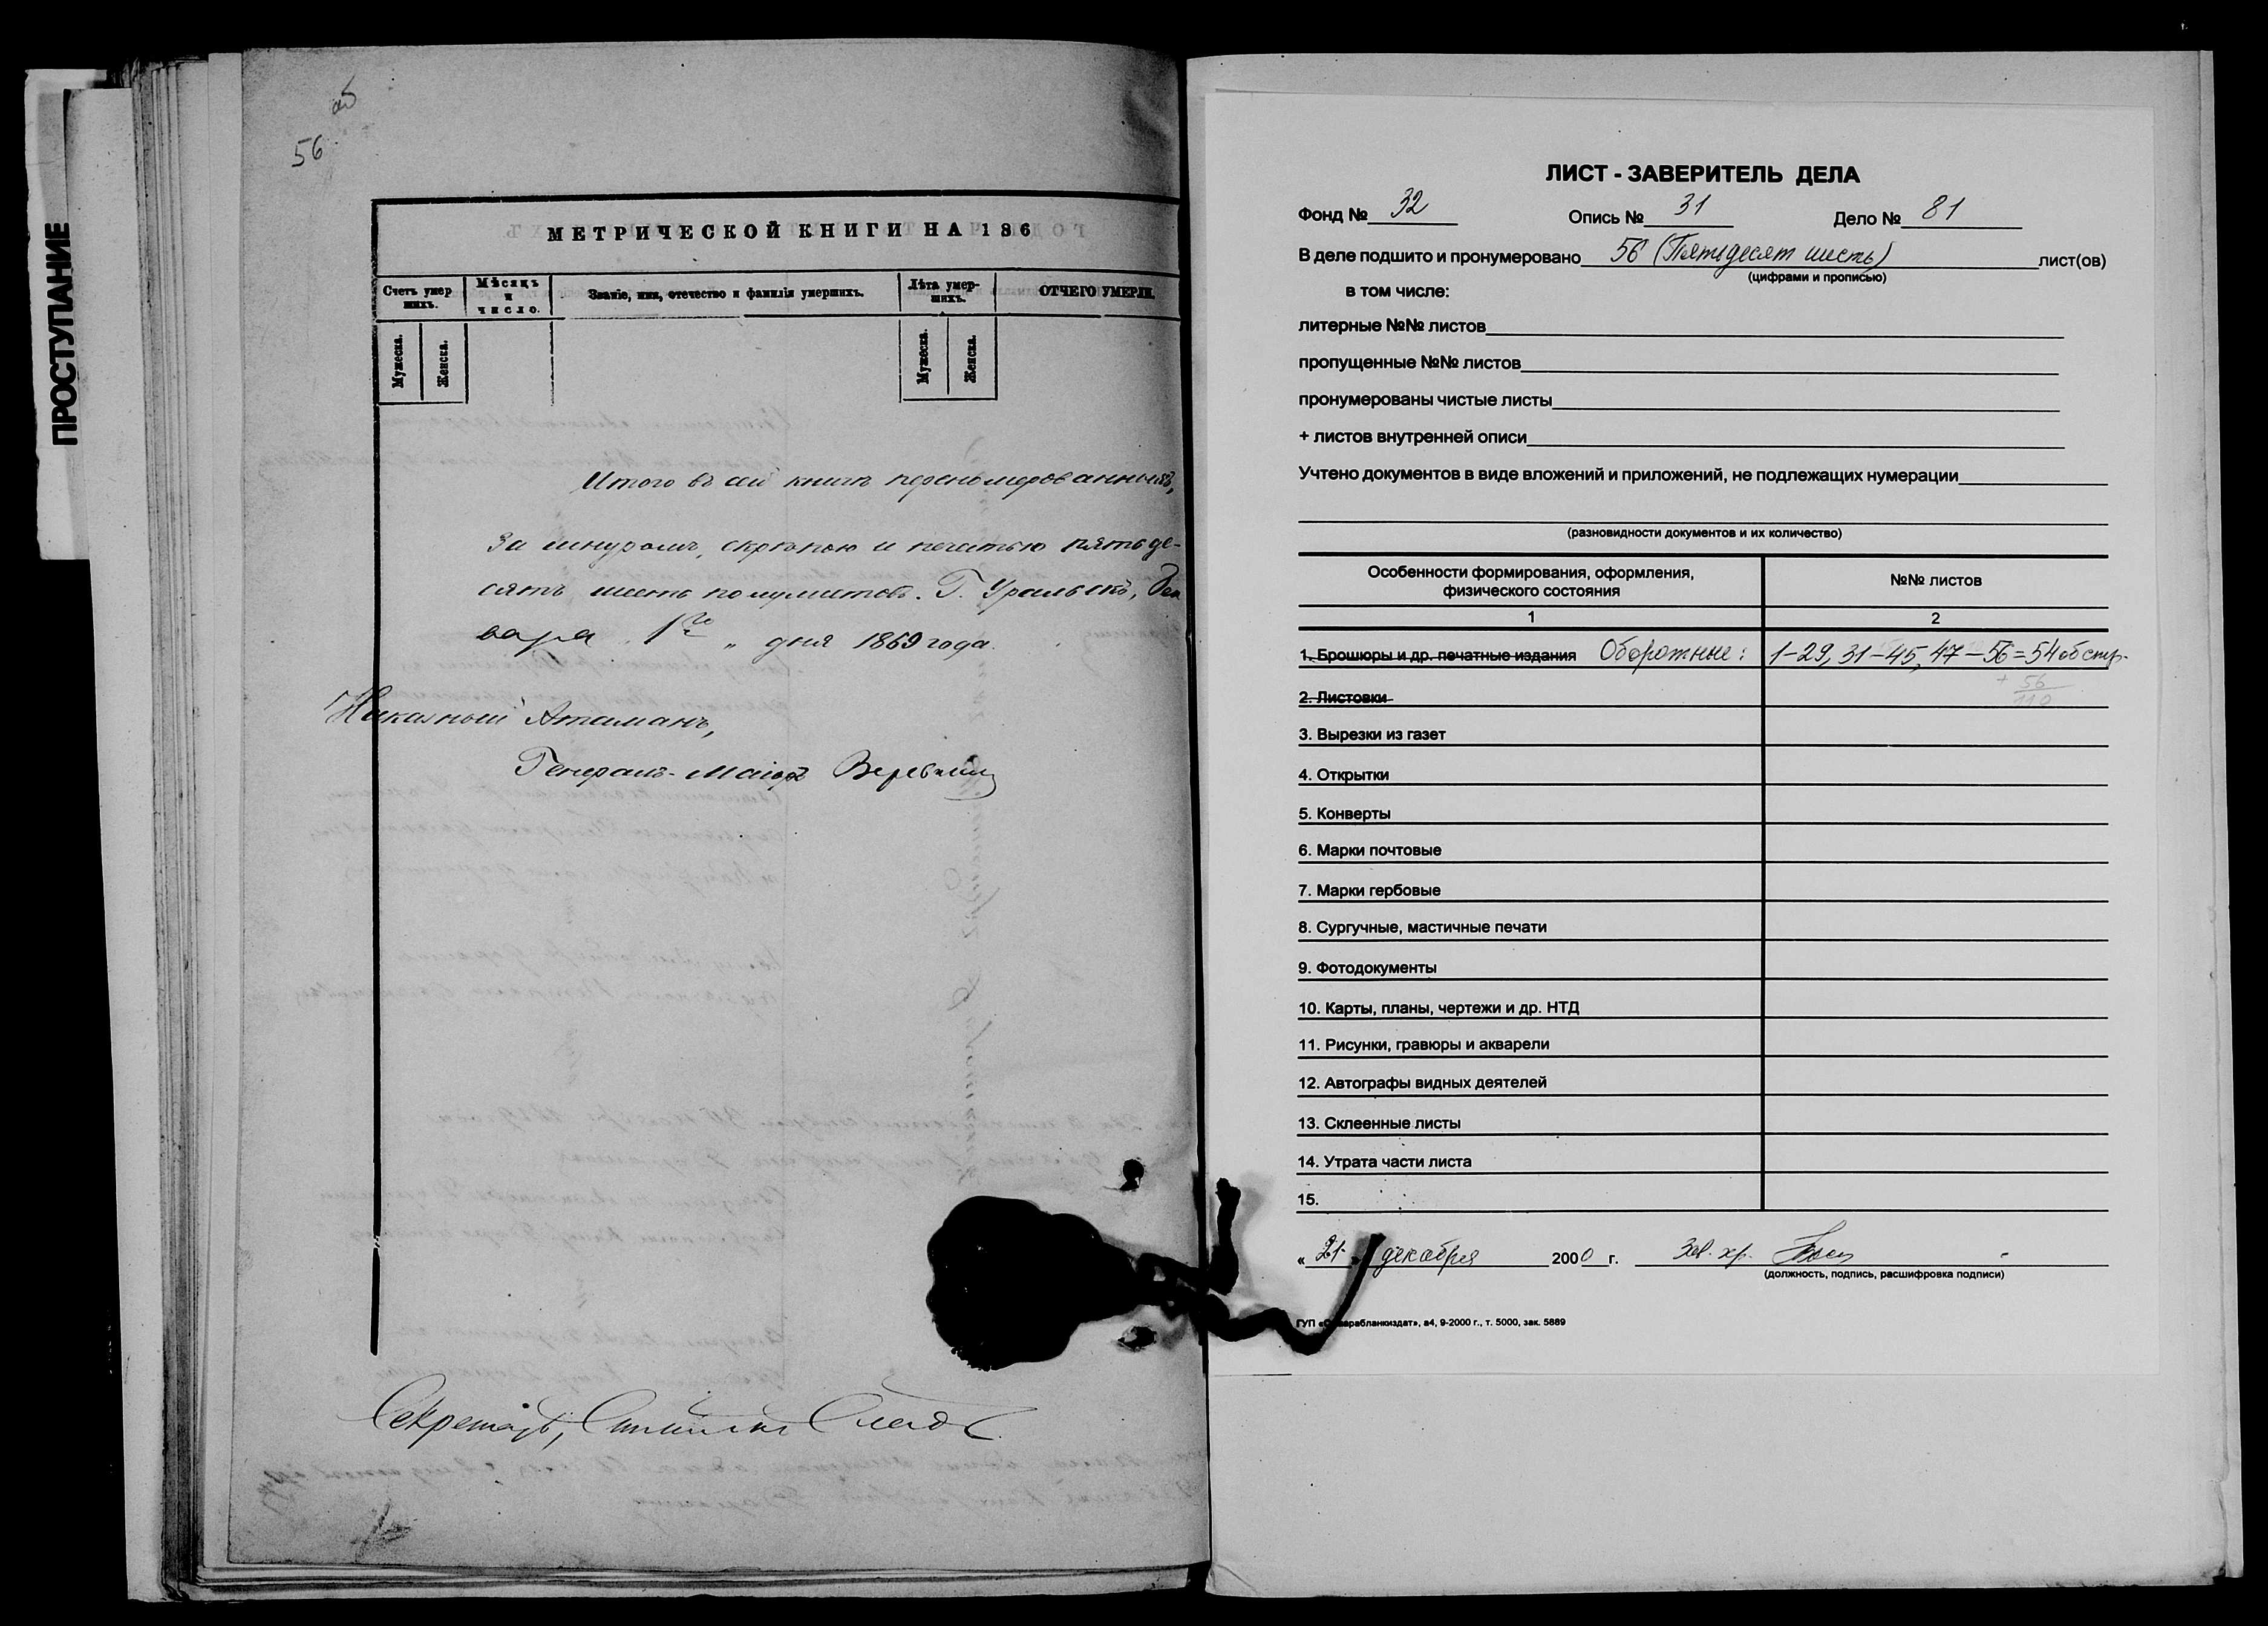 ПРОСТУПАНИЕ
об
56
МЕТРИЧЕСКОЙ КНИГИ НА 186
Счетъ умер
шихъ.
Мѣсяцъ
и
число.
Званіе, имя, отечество и фамилія умершихъ.
Лѣта умер-
шихъ.
ОТЧЕГО УМЕРЛИ.
Мужеска.
Женска.
Мужеска.
Женска.
Итого въ сей книгѣ перенумерованныхъ,
за шнуромъ, скрѣпою и печатью пятьде-
сятъ шесть полулистовъ. Г. Уральскъ,
варя 1го дня 1869 года.
Наказный Атаманъ,
Генералъ-Маіоръ Веревкинъ
Секретарь,
ЛИСТ - ЗАВЕРИТЕЛЬ ДЕЛА
Фонд № 32 Опись № 31 Дело № 81
В деле подшито и пронумеровано 56 (Пятьдесят шесть) лист(ов)
(цифрами и прописью)
в том числе:
литерные №№ листов
пропущенные №№ листов
пронумерованы чистые листы
+ листов внутренней описи
Учтено документов в виде вложений и приложений, не подлежащих нумерации
(разновидности документов и их количество)
Особенности формирования, оформления,
физического состояния
№№ листов
1 2
1. Брошюры и др. печатные издания Оборотные: 1-29, 31-45, 47-56=54 об стр.
2. Листовки
+ 56
110
3. Вырезки из газет
4. Открытки
5. Конверты
6. Марки почтовые
7. Марки гербовые
8. Сургучные, мастичные печати
9. Фотодокументы
10. Карты, планы, чертежи и др. НТД
11. Рисунки, гравюры и акварели
12. Автографы видных деятелей
13. Склеенные листы
14. Утрата части листа
15.
«21» декабря 2000 г. Зав. хр.
(должность, подпись, расшифровка подписи)
ГУП «Самарабланкиздат», а4, 9-2000 г., т. 5000, зак. 5889